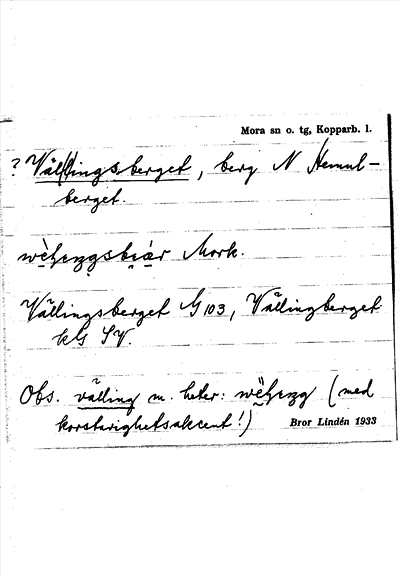 Mora sn o. tg, Kopparb. l.
? Väl(l)ingsberget, berg N Hemul-
berget.
Mork.
Vällingsberget G 103, Vällingberget
kG SV.
Obs. välling m. heter: (med
korstavighetsakcent!)
Bror Lindén 1933